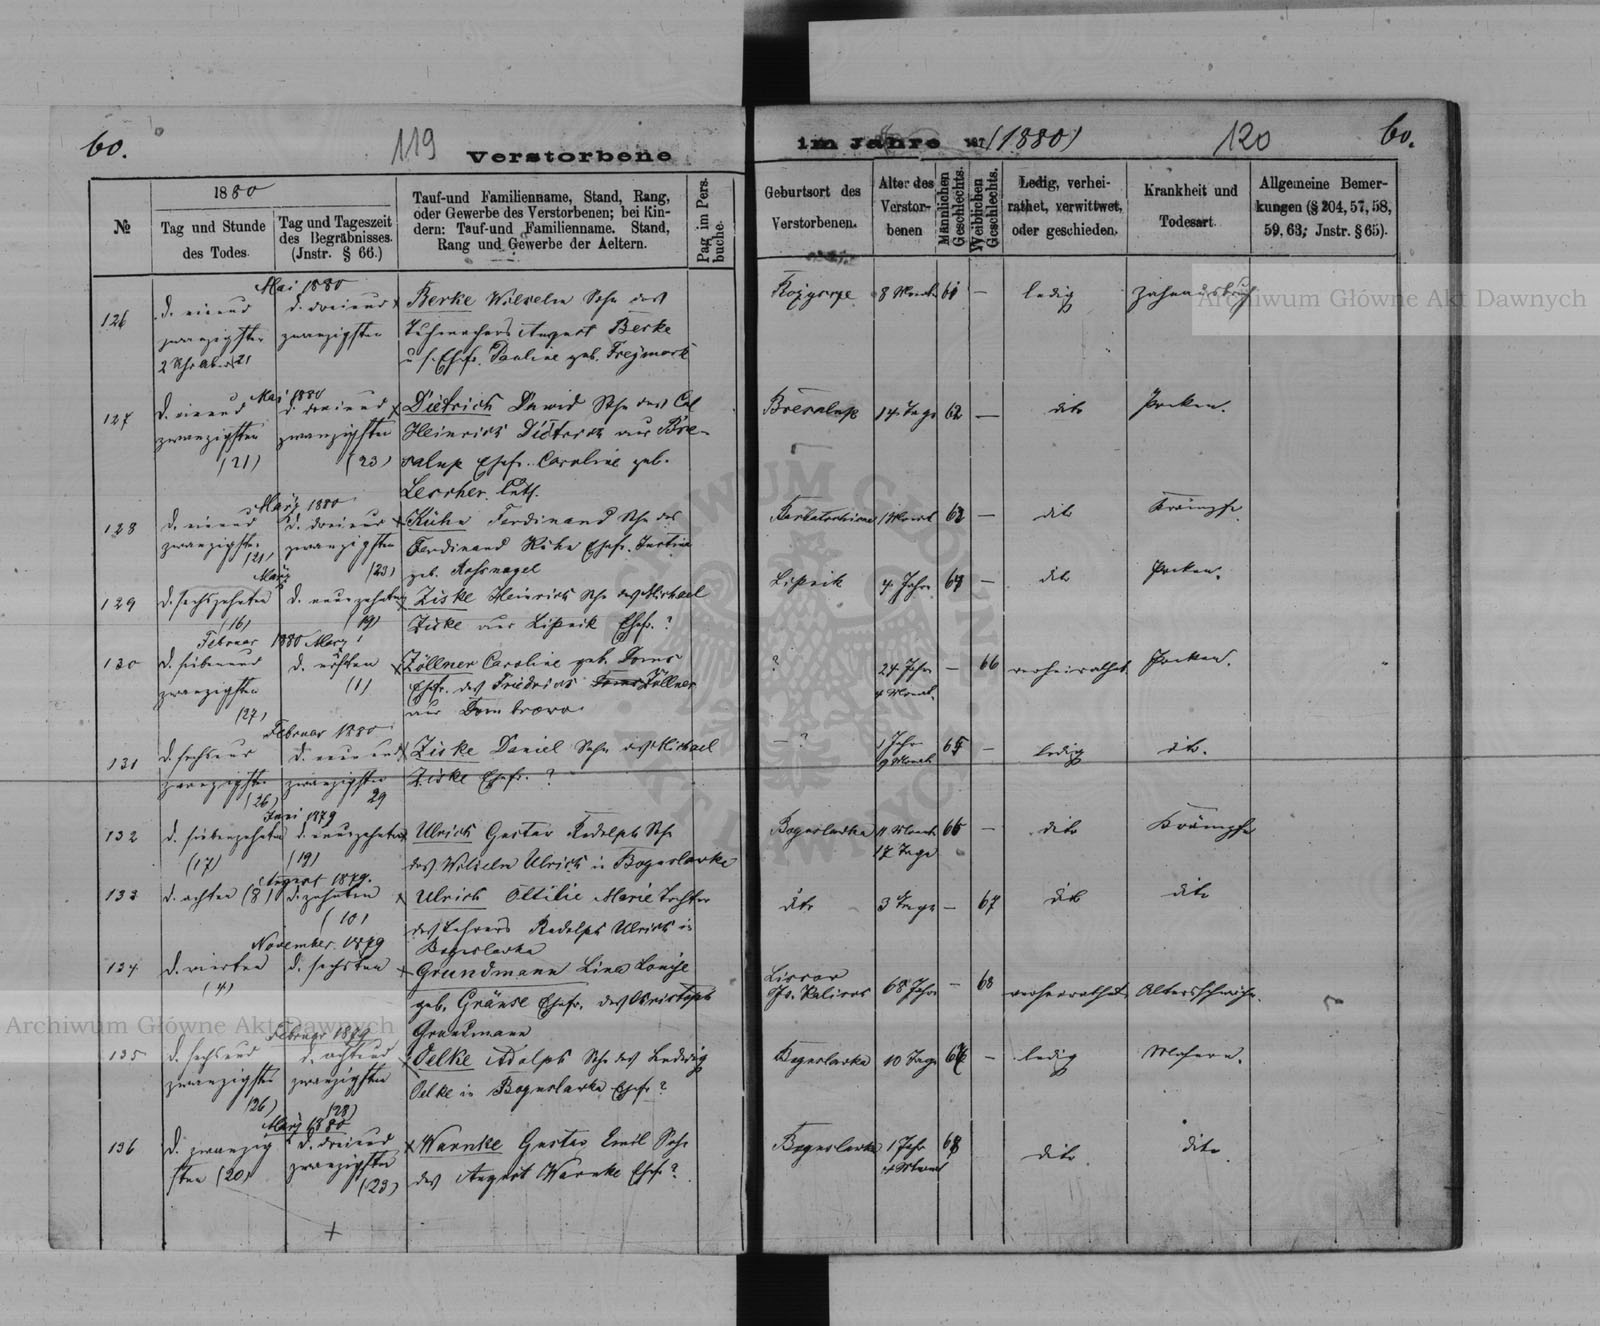 60.
119
Verstorbene
im Jahre 187 (1880)
120
60.
№
1880
Tag und Stunde
des Todes.
Tag und Tageszeit
des Begräbnisses.
(Jnstr. § 66.)
Tauf-und Familienname, Stand, Rang,
oder Gewerbe des Verstorbenen; bei Kin-
dern: Tauf-und Familienname. Stand,
Rang und Gewerbe der Aeltern.
Pag im Pers.
buche.
Geburtsort des
Verstorbenen.
Alter des
Verstor-
benen
Männlichen
Geschlechts.
Weiblichen
Geschlechts.
Ledig, verhei-
rathet, verwittwet,
oder geschieden.
Krankheit und
Todesart.
Allgemeine Bemer-
kungen (§ 204, 57, 58,
59, 63; Jnstr. § 65).
Mai 1880
126
d. einund
zwanzigsten
d. dreiund
zwanzigsten
Berke Wilhelm Sohn des
Tuchmachers August Berke
u. s. Ehefr. Pauline geb. Freymark
8 Monate
61
—
ledig
Mai 1880
127
d. einund
zwanzigsten
(21)
d. dreiund
zwanzigsten
(23)
Dietrich Dawid Sohn des Col
Heinrich Dietrich aus Bre-
Ehefr. Caroline geb.
14 Tage
62
—
dito
Pocken.
März 1880
128
d. einund
zwanzigsten
(21)
d. dreiund
zwanzigsten
(23)
Kühn Ferdinand Sohn des
Ferdinand Kühn Ehefr. Justine
geb. Rossnagel
1 Monat
—
dito
Krämpfe
März
129
d. sechszehnten
(16)
d. neunzehnten
(19)
Ziske Heinrich Sohn des Michael
Ziske aus Lipnik Ehefr. ?
Lipnik
4 Jahre
64
—
dito
Pocken.
Februar 1880 März
130
d. siebenund
zwanzigsten
(27)
d. ersten
(1)
Zöllner Caroline geb. Doms
Ehefr. des Friedrich Zöllner
aus Dombrowo
?
24 Jahre
4 Monat
—
66
verheirathet
Pocken.
Februar 1880
131
d. sechsund
zwanzigsten
(26)
d. neunund
zwanzigsten
29
Ziske Daniel Sohn des Michael
Ziske Ehefr. ?
— ?
1 Jahr
9 Monat
65
—
ledig
dito.
Juni 1879
132
d. siebenzehnten
(17)
d. neunzehnten
(19)
Ulrich Gustav Rudolph Sohn
des Wilhelm Ulrich in Boguslawka
Boguslawka
11 Monate
17 Tage
66
—
dito
Krämpfe
August 1879.
133
d. achten (8)
d. zehnten
(10)
Ulrich Ottilie Marie Tochter
des Lehrers Rudolph Ulrich in
Boguslawka
dito
3 Tage
—
67
dito
dito
November 1879
134
d. vierten
(4)
d. sechsten
Grundmann Lina Louise
geb. Gränse Ehefr. des Christoph
Grundmann
68 Jahre
—
68
verheirathet
Altersschwäche.
Februar 1879
135
d. sechsund
zwanzigsten
(26)
d. achtund
zwanzigsten
(28)
Oelke Adolph Sohn des Ludwig
Oelke in Boguslawka Ehefr ?
Boguslawka
10 Tage
67
—
ledig
Masern.
März 1880
136
d. zwanzig
sten (20)
d. dreiund
zwanzigsten
(23)
Warnke Gustav Emil Sohn
des August Warnke Ehefr ?
Boguslawka
1 Jahr
68
dito
dito
Archiwum Główne Akt Dawnych
Archiwum Główne Akt Dawnych
ARCHIWUM GŁÓWNE AKT DAWNYCH